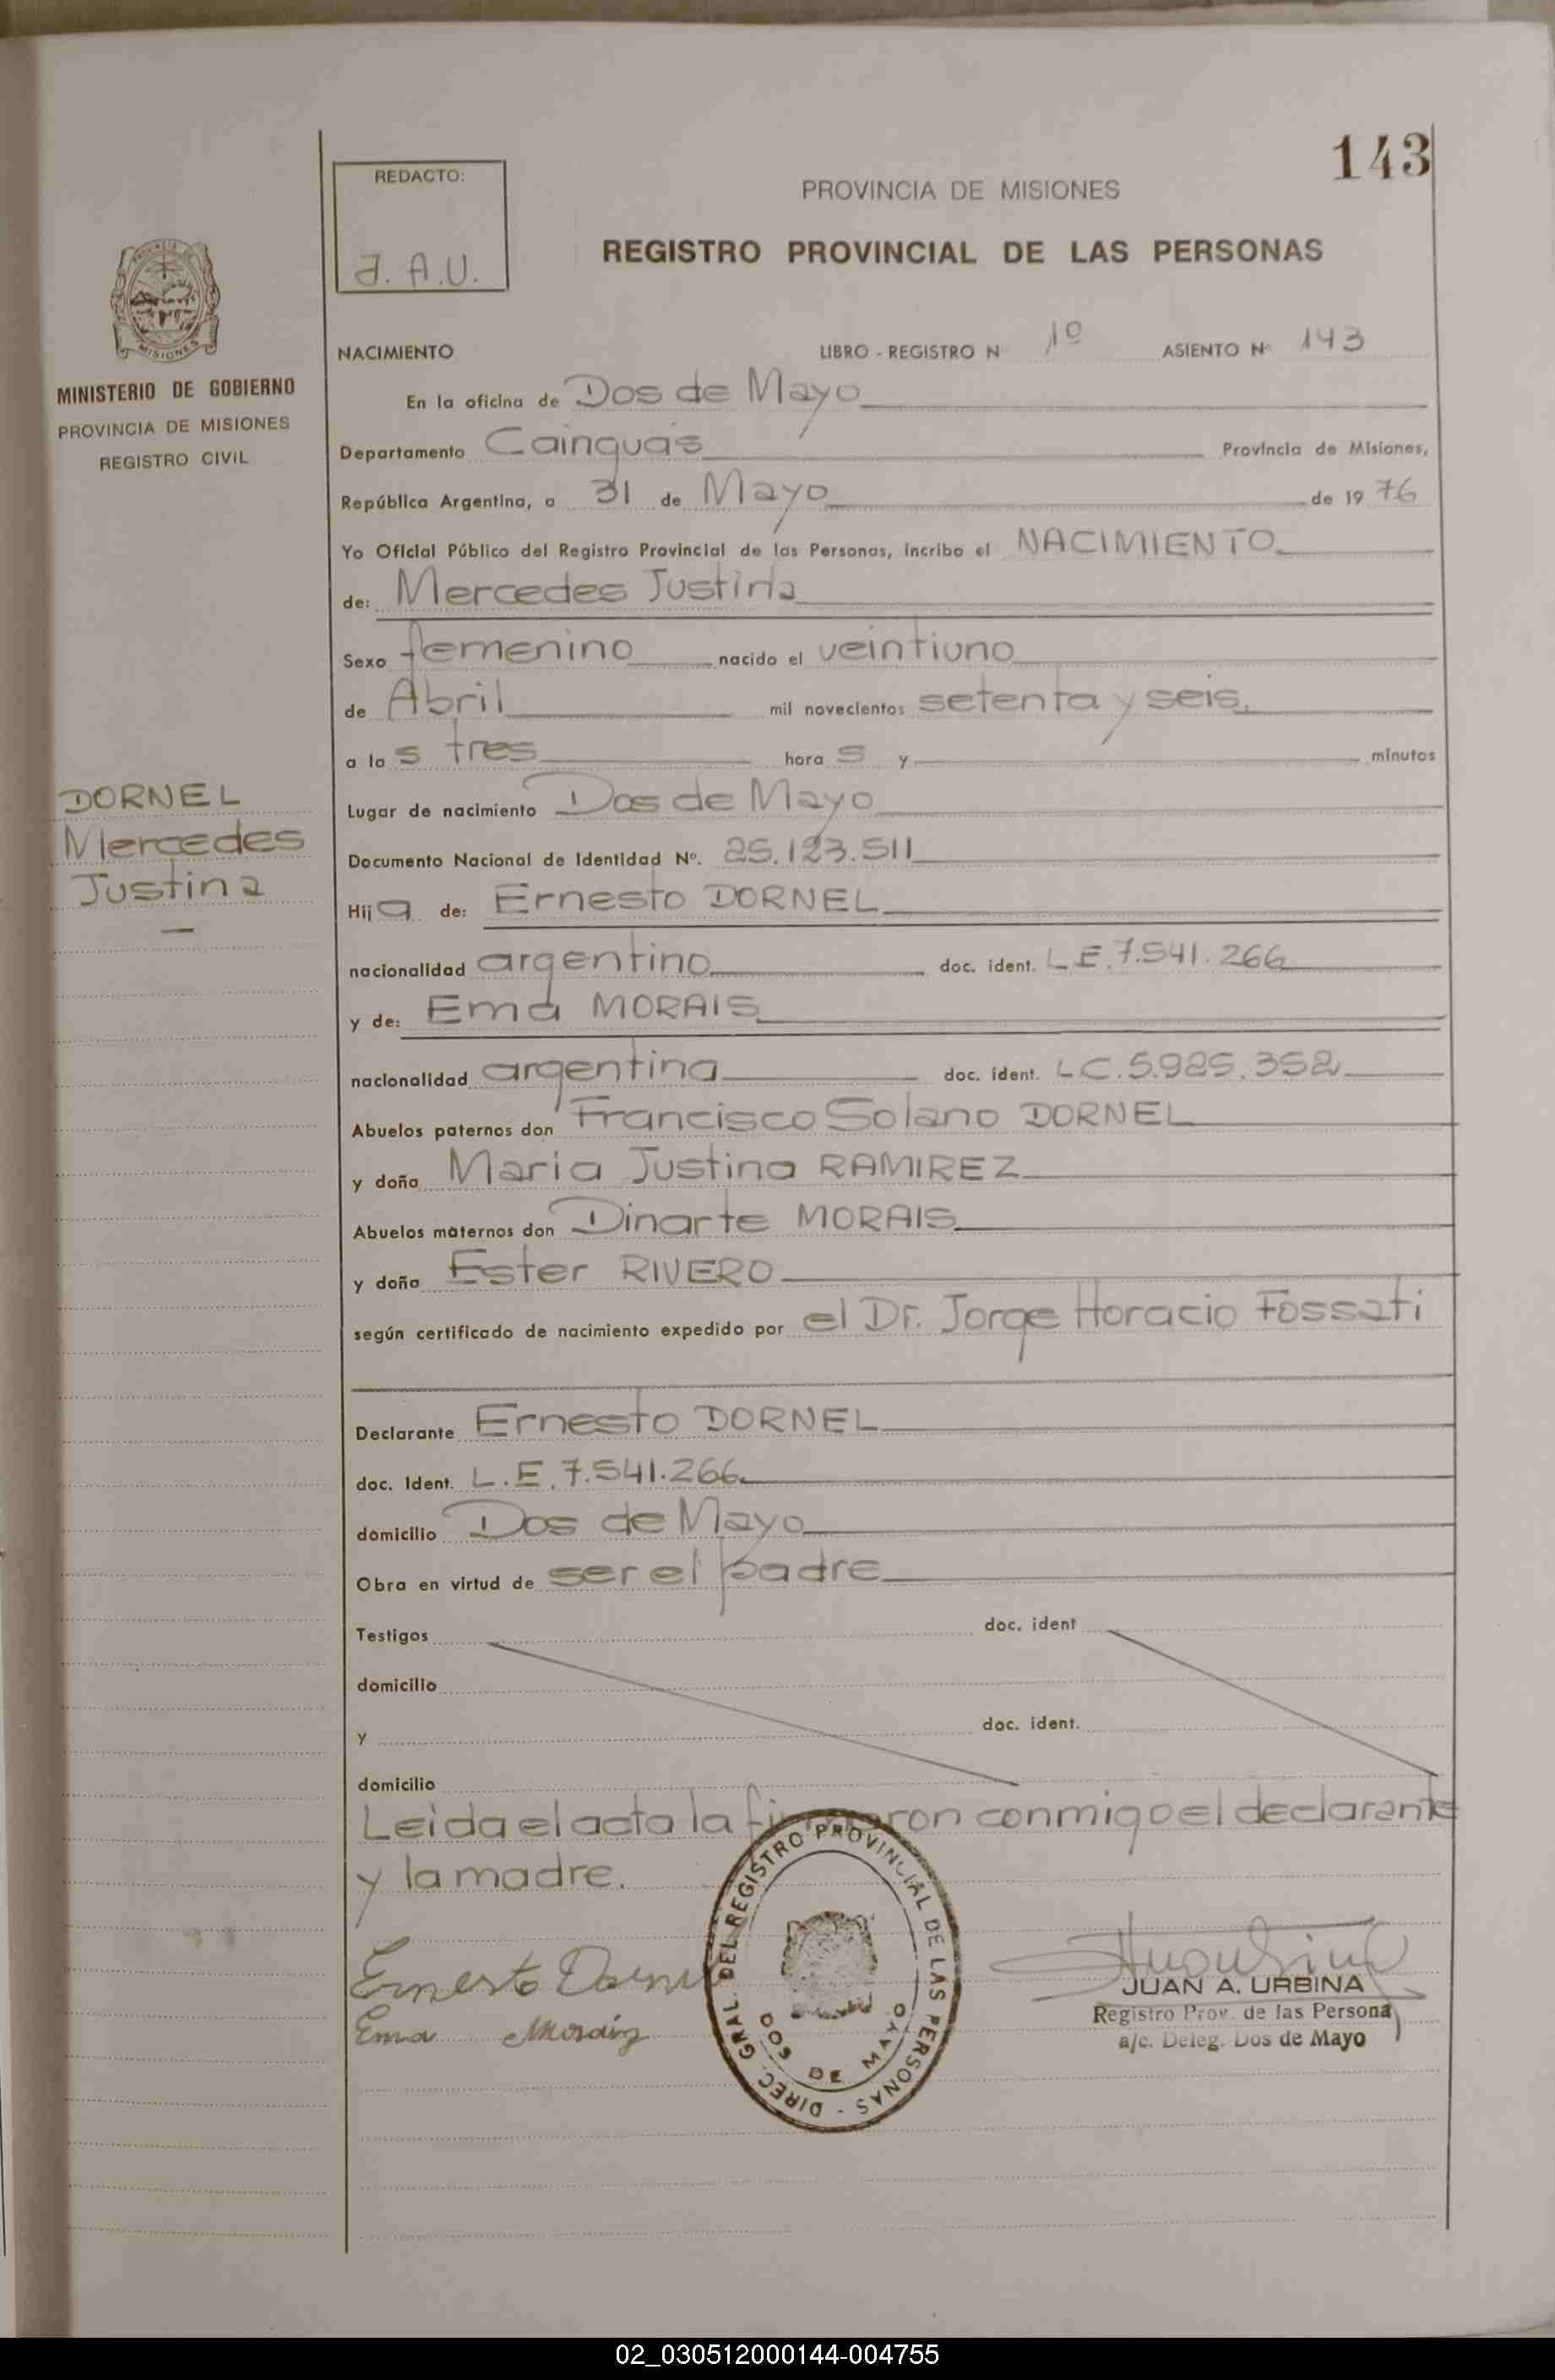 143
REDACTO:
J. A. U.
PROVINCIA DE MISIONES
REGISTRO PROVINCIAL DE LAS PERSONAS
MISIONES
MINISTERIO DE GOBIERNO
PROVINCIA DE MISIONES
REGISTRO CIVIL
NACIMIENTO LIBRO - REGISTRO N 1º ASIENTO Nº 143
En la oficina de Dos de Mayo
Departamento Cainguás Provincia de Misiones,
República Argentina, a 31 de Mayo de 19 76
Yo Oficial Público del Registro Provincial de las Personas, incribo el NACIMIENTO
de: Mercedes Justina
Sexo femenino nacido el veintiuno
de Abril mil novecientos setenta y seis.
a la s tres hora s y minutos
DORNEL
Mercedes
Justina
Lugar de nacimiento Dos de Mayo
Documento Nacional de Identidad Nº. 25.123.511
Hij a de: Ernesto DORNEL
nacionalidad argentino doc. ident. L.E. 7.541.266
y de: Ema MORAIS
nacionalidad argentina doc. ident. L.C. 5.925.352
Abuelos paternos don Francisco Solano DORNEL
y doña Maria Justina RAMIREZ
Abuelos maternos don Dinarte MORAIS
y doña Ester RIVERO
según certificado de nacimiento expedido por el Dr. Jorge Horacio Fossati
Declarante Ernesto DORNEL
doc. Ident. L.E. 7.541.266
domicilio Dos de Mayo
Obra en virtud de ser el padre
Testigos doc. ident
domicilio
y doc. ident.
domicilio
Leida el acta la firmaron conmigo el declarante
y la madre.
DIREC. GRAL. DEL REGISTRO PROVINCIAL DE LAS PERSONAS -
DOS DE MAYO
Ernesto Dornel
Ema Moraiz
JUAN A. URBINA
Registro Prov. de las Persona
a/c. Deleg. Dos de Mayo
02_030512000144-004755